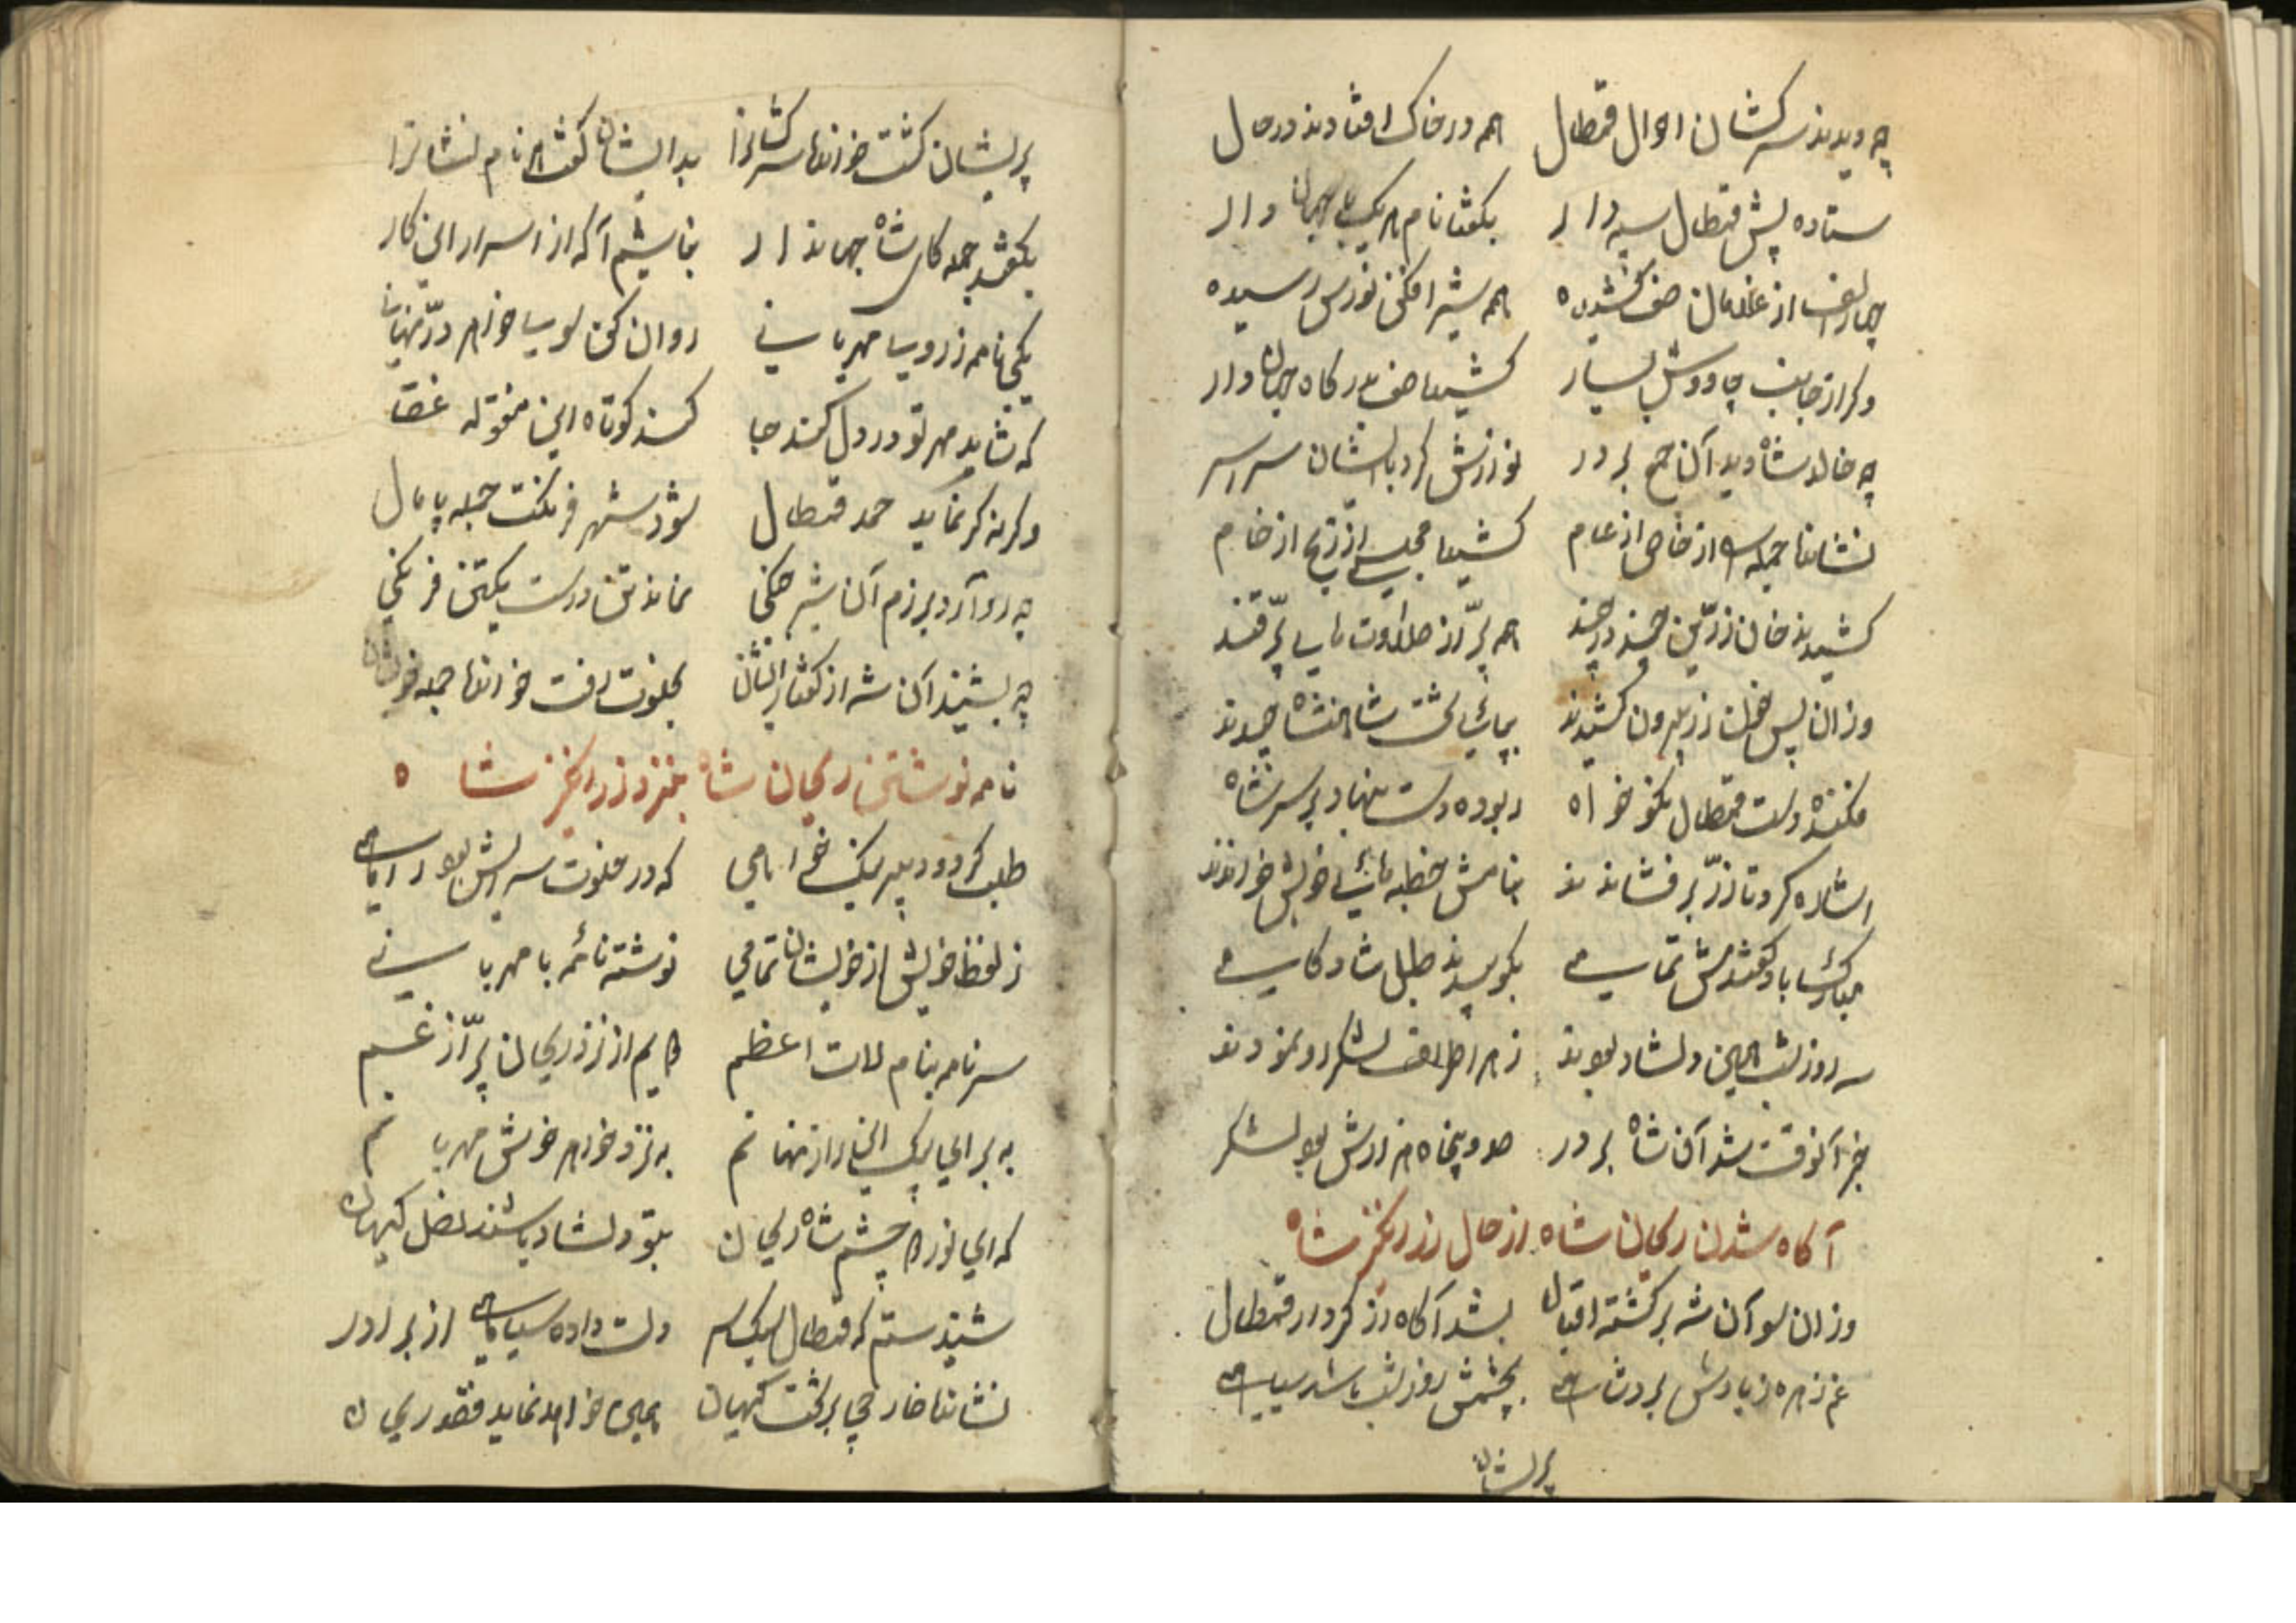 چه دیدند سرکشان احوال قمطال همه در خاک افتادند در حال
ستاده پیش قمطال سپه دار بگفتا نام هر یک با جهان دار
چهار الف از غلامان صف کشیده همه شیر افکنی نورس رسیده
دگر از جانب چاووش بسیار کشیدا صف بدرگاه جهان دار
چه خالد شاه دید آن جمع بر در نوازش کرد با ایشان سراسر
نشاندا جمله را از خاص از عام کشیدا مجلسی از زر از خام
کشیدند خان زرّین چند در چند همه پرّ از حلاوت های پرّ قند
وزان پس خوان زر بیرون کشیدند بپای تخت شاهنشاه چیدند
فکنده دست قمطال نکو خواه ربوده دست بنهاد بر سر شاه
اشاره کرد تا زرّ بر فشاندند بنامش خطبه های خویش خواندند
مبارک باد گفتندش تمامی بکوبیدند طبل شادکامی
سه روز شب همین دلشاد بودند ز هر اطراف لشکر رو نمودند
خبر آنوقت شد آن شاه بر در صد و پنجاه هزارش بود لشکر
آگاه شدن ریحان شاه از حال زرانگیز شاه
وزان سو آن شه برگشته اقبال بشد آگاه از کردار قمطال
غم زهره ز یادش برد شاهی بچشمش روز شب باشد سیاهی
پریشان
پریشان گشت خواندا سرکشانرا بدایشان گفت هم نام نشانرا
بگفتند جمله کای شاه جهاندار بخاشیم آگه از اسرار این کار
یکی نامه ز روی مهربانی روان کن سوی خواهر در نهانی
که شاید مهر تو در دل کند جا کند کوتاه این غوغا
وگرنه گر نماید حمد قمطال شود شهر فرنگت جمله پامال
چه رو آرد برزم آن شیر جنگی نماند تن درست یکتن فرنگی
چه بشنید آن شه از گفتار ایشان بخلوت رفت خواندا جمله خویشان
نامه نوشتن ریحان شاه بنزد زرانگیز شاه ه
طلب کرد و دبیر نیک خواهی که در خلوت سرایش بود راهی
ز لفظ خویش از خویشان تمامی نوشته نامه با مهربانی
سر نامه بنام لات اعظم دایم از نزد ریحان پرّ از غم
به برای پیک این راز نهانم به نزد خواهر خوش مهربانم
که ای نور دو چشم شاه ریحان بتو دلشاد باشند اهل کیهان
شنیدستم که قمطال دلت داده سیاهی از برادر
نشاندا خارجی بر تخت کیهان همی خواهد نماید قصد ریحان